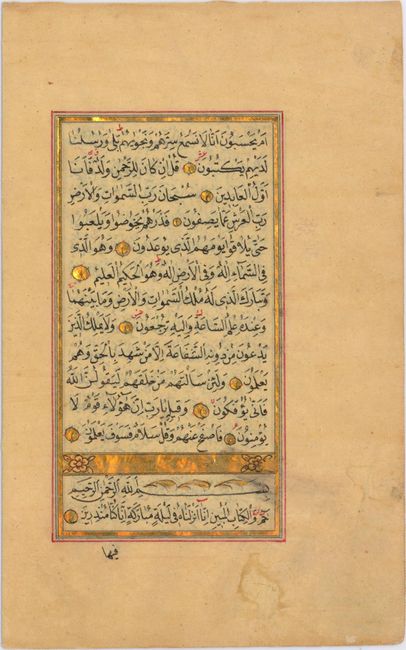 ام يحسبون انا لا نسمع سرهم ونجويهم بلى ورسلنا
لديهم يكتبون قل ان كان للرحمن ولد فانا
اول العابدين سبحان رب السموات والارض
رب العرش عما يصفون فذرهم يخوضوا ويلعبوا
حتى يلاقوا يومهم الذى يوعدون وهو الذى
فى السماء اله وفى الارض اله وهو الحكيم العليم
وتبارك الذى له ملك السموات والارض وما بينهما
وعنده علم الساعة واليه ترجعون ولا يملك الذين
يدعون من دونه الشفاعة الا من شهد بالحق وهم
يعلمون ولئن سالتهم من خلقهم ليقولن الله
فانى يؤفكون وقيله يارب ان هؤلاء قوم لا
يؤمنون فاصفح عنهم وقل سلام فسوف يعلمون
بسم الله الرحمن الرحيم
حم والكتاب المبين انا انزلناه فى ليلة مباركة انا كنا منذرين
فيها